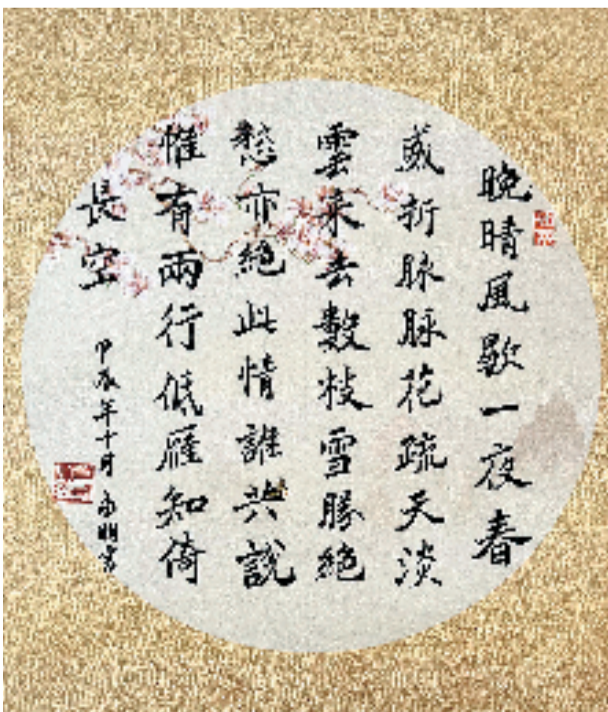 晚晴風歇一夜春
威折脉脉花疏天淡
雲来去數枝雪勝絕
愁亦絕此情誰共說
惟有兩行低雁知倚
長空
甲辰年十月 明書